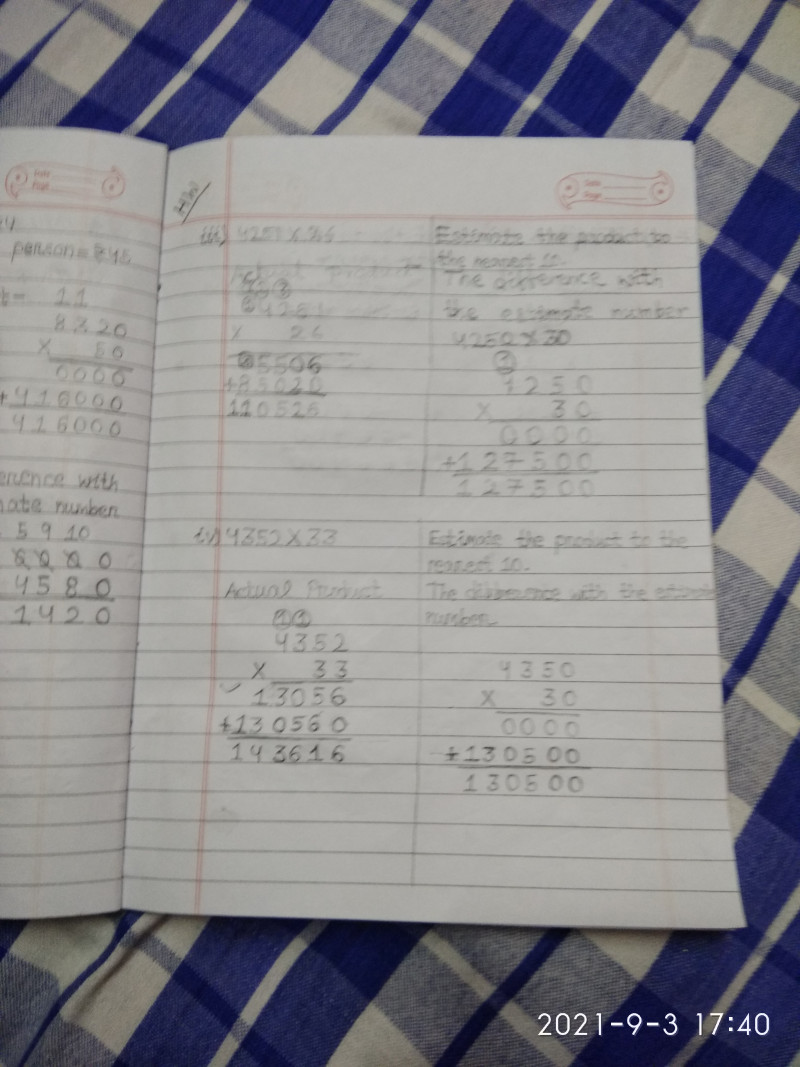 Date
Page
person = ₹ 48
11
8320
X 50
0000
+416000
416000
erence with
mate number
5 9 10
0
4580
1420
Date
Page
iii) 4251 X 26
Actual Product
4251
X 26
25506
+85020
110526
Estimate the product to
the nearest 10.
The difference with
the estimate number
4250 X 30
X 30
0000
+127500
127500
iv) 4352 X 33
Actual Product
① ①
4352
X 33
13056
+130560
143616
Estimate the product to the
nearest 10.
The difference with the estimate
number.
4350
X 30
0000
+130500
130500
2021-9-3 17:40